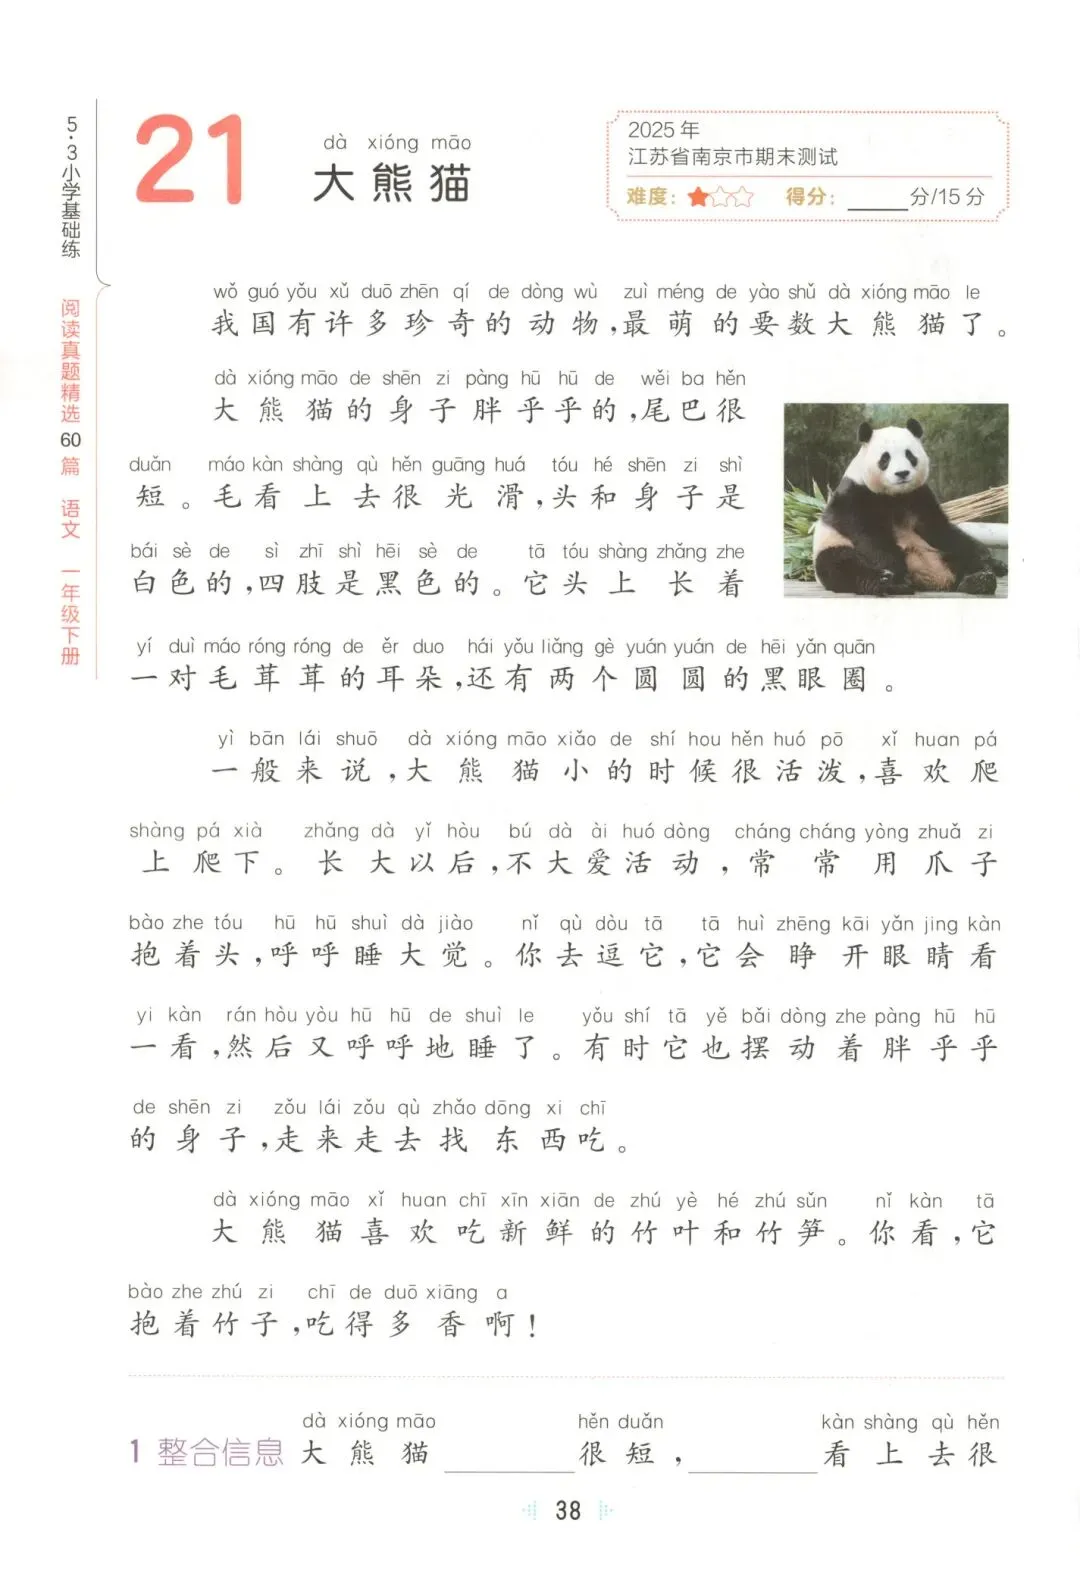 5·3小学基础练
阅读真题精选60篇 语文 一年级下册
21
dà xióng māo
大熊猫
2025年
江苏省南京市期末测试
难度：★☆☆ 得分：____分/15分
wǒ guó yǒu xǔ duō zhēn qí de dòng wù zuì méng de yào shǔ dà xióng māo le
我国有许多珍奇的动物,最萌的要数大熊猫了。
dà xióng māo de shēn zi pàng hū hū de wěi ba hěn
大熊猫的身子胖乎乎的,尾巴很
duǎn máo kàn shàng qù hěn guāng huá tóu hé shēn zi shì
短。毛看上去很光滑,头和身子是
bái sè de sì zhī shì hēi sè de tā tóu shàng zhǎng zhe
白色的,四肢是黑色的。它头上长着
yí duì máo róng róng de ěr duo hái yǒu liǎng gè yuán yuán de hēi yǎn quān
一对毛茸茸的耳朵,还有两个圆圆的黑眼圈。
yì bān lái shuō dà xióng māo xiǎo de shí hou hěn huó pō xǐ huan pá
一般来说,大熊猫小的时候很活泼,喜欢爬
shàng pá xià zhǎng dà yǐ hòu bú dà ài huó dòng cháng cháng yòng zhuǎ zi
上爬下。长大以后,不大爱活动,常常用爪子
bào zhe tóu hū hū shuì dà jiào nǐ qù dòu tā tā huì zhēng kāi yǎn jing kàn
抱着头,呼呼睡大觉。你去逗它,它会睁开眼睛看
yi kàn rán hòu yòu hū hū de shuì le yǒu shí tā yě bǎi dòng zhe pàng hū hū
一看,然后又呼呼地睡了。有时它也摆动着胖乎乎
de shēn zi zǒu lái zǒu qù zhǎo dōng xi chī
的身子,走来走去找东西吃。
dà xióng māo xǐ huan chī xīn xiān de zhú yè hé zhú sǔn nǐ kàn tā
大熊猫喜欢吃新鲜的竹叶和竹笋。你看,它
bào zhe zhú zi chī de duō xiāng a
抱着竹子,吃得多香啊!
dà xióng māo hěn duǎn kàn shàng qù hěn
1 整合信息 大熊猫________很短,________看上去很
38